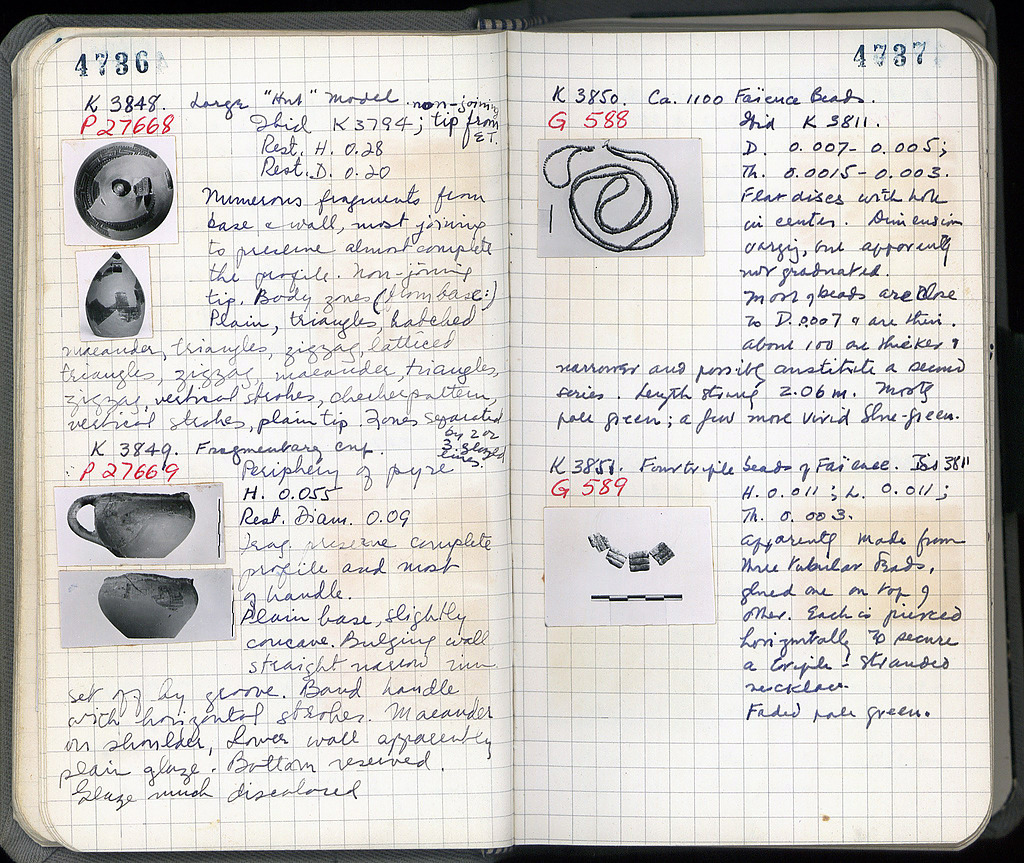 4736
K 3848. Large "Hut" Model. non-joining
P 27668 Ibid K 3794; tip from
E.T.
Rest. H. 0.28
Rest. D. 0.20
Numerous fragments from
base & wall, most joining
to preserve almost complete
the profile. Non-joining
tip. Body zones (from base:)
Plain, triangles, hatched
maeander, triangles, zigzag, latticed
triangles, zigzag, maeander, triangles,
zigzag, vertical strokes, checkerpattern,
vertical strokes, plain tip. Zones separated
by 2 or
3 glazed
lines.
K 3849. Fragmentary cup.
P 27669 Periphery of pyre
H. 0.055
Rest. Diam. 0.09
Frag. preserve complete
profile and most
of handle.
Plain base, slightly
concave. Bulging wall
straight narrow rim
set off by groove. Band handle
with horizontal strokes. Maeander
on shoulder, Lower wall apparently
plain glaze. Bottom reserved.
Glaze much discolored
4737
K 3850. Ca. 1100 Faïence Beads.
G 588 Ibid K 3811.
D. 0.007-0.005;
Th. 0.0015-0.003.
Flat discs with hole
in center. Dimension
varying, but apparently
not graduated.
Most of beads are close
to D. 0.007 & are thin.
About 100 are thicker &
narrower and possibly constitute a second
series. Length strung 2.06 m. Mostly
pale green; a few more vivid blue-green.
K 3851. Four triple beads of Faïence. Ibid 3811
G 589 H. 0.011; L. 0.011;
Th. 0.003.
Apparently made from
three tubular beads,
glued one on top of
other. Each is pierced
horizontally to secure
a triple-stranded
necklace.
Faded pale green.